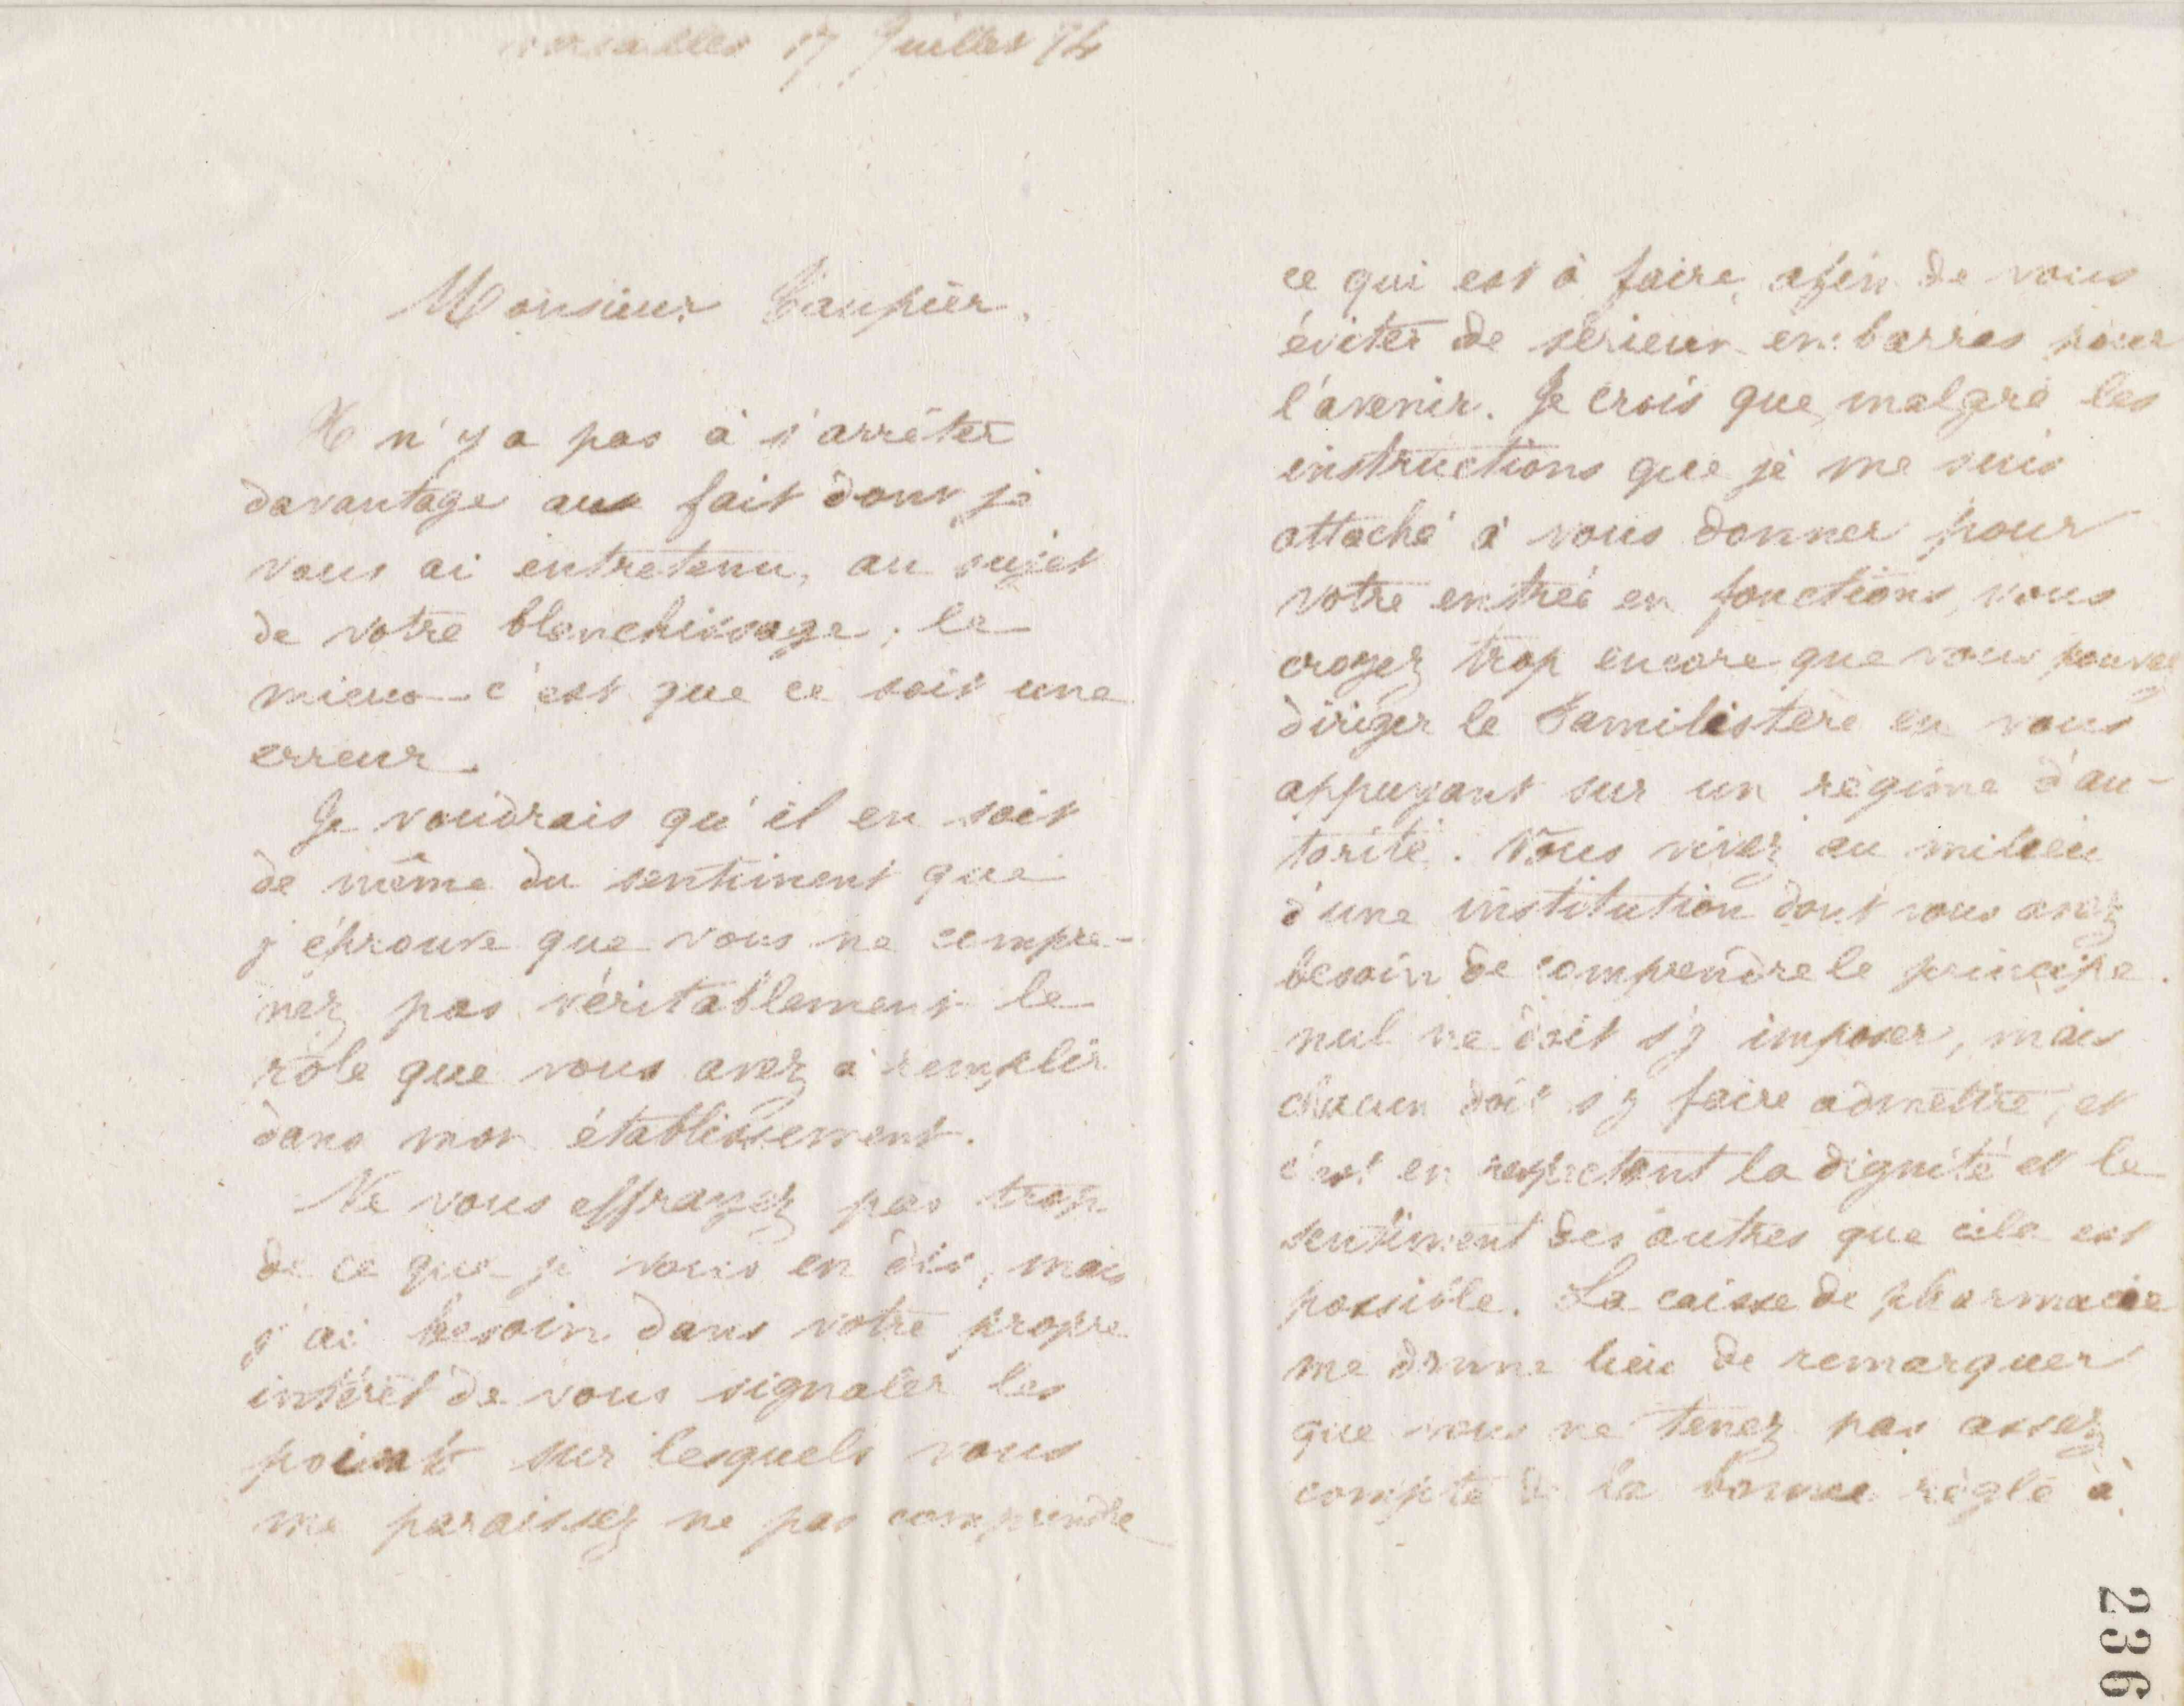 Versailles 17 Juillet 74
Monsieur
Il n'y a pas à s'arrêter
davantage aux fait dont je
vous ai entretenu, au sujet
de votre blanchissage; le
mieux c'est que ce soit une
erreur.
Je voudrais qu'il en soit
de même du sentiment que
j'éprouve que vous ne compre-
nez pas véritablement le
rôle que vous avez à remplir
dans mon établissement.
Ne vous effrayez pas trop
de ce que je vous en dis, mais
j'ai besoin dans votre propre
intérêt de vous signaler les
points sur lesquels vous
me paraissez ne pas comprendre
ce qui est à faire, afin de vous
éviter de sérieux embarras pour
l'avenir. Je crois que, malgré les
instructions que je me suis
attaché à vous donner pour
votre entrée en fonctions, vous
croyez trop encore que vous pouvez
diriger le Familistère en vous
appuyant sur un régime d'au-
torité. Vous vivez au milieu
d'une institution dont vous avez
besoin de comprendre le principe.
nul ne doit s'y imposer, mais
chacun doit s'y faire admettre, et
c'est en respectant la dignité et le
sentiment des autres que cela est
possible. La caisse de pharmacie
me donne lieu de remarquer
que vous ne tenez pas assez
compte de la bonne règle à
236